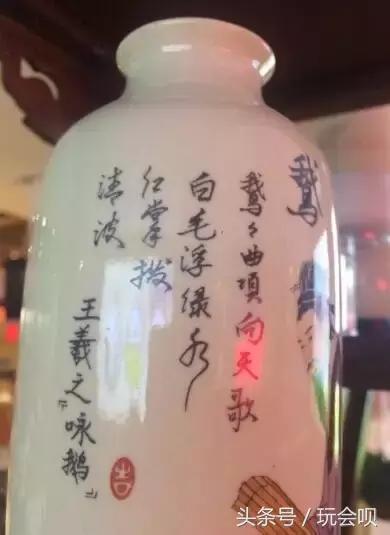 鵞
鵞々曲項向天歌
白毛浮绿水
红掌撥
清波
王羲之『咏鹅』
吉
头条号／玩会呗